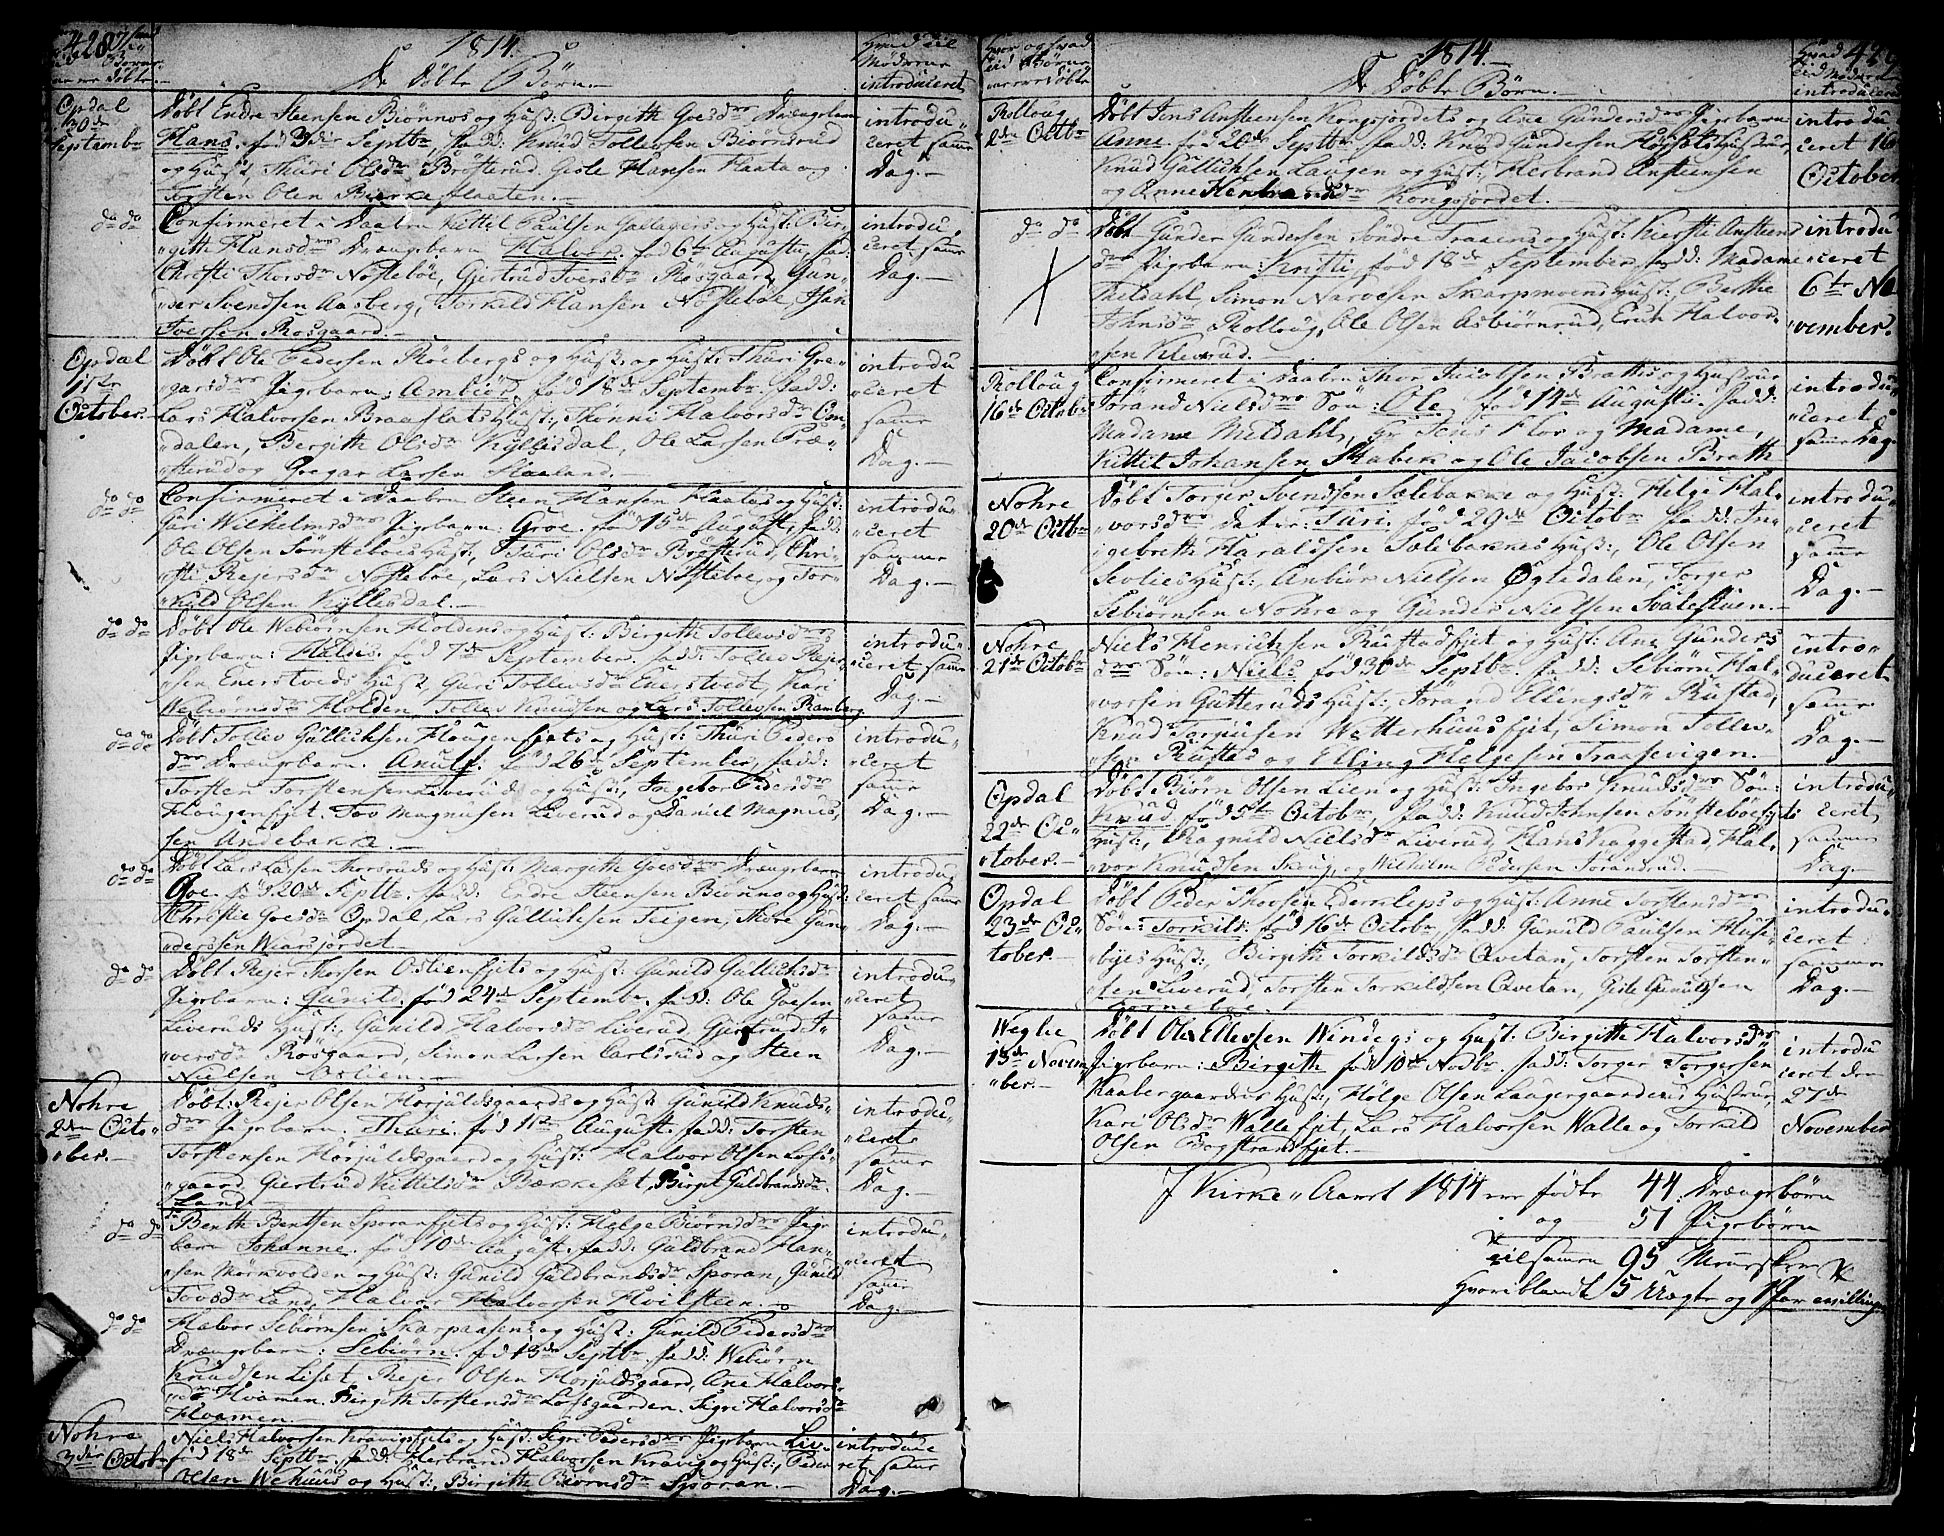 428
1814.
De Döbte Börn.
Hvad Tid Mödrene introduceret
Opdal
30de
Septembr
Döbt Endre Steensen Biönnes og Hust: Birgith Goesdr Drængebarn
Hans. fød 3die Septbr, fadd: Knud Tollevsen Biörnsrud
og Hust, Thuri Olsdr Bröfterud. Giste Hansen Flaata og
Torsten Olsen Bierkeflaaten.
introdu
ceret samme
Dag.
do do
Confirmeret i Daaben Kittil Paulsen Gallagers og Hust: Bir
"gith Hansdr Drængebarn Halvor. fød 6te Augusti, fad:
Christi Thorsdr Nöfteböe, Giertrud Iversdr Rösgaard, Gun
"ner Svendsen Aasberg, Torkild Hansen Nöfteböe, Ifar
Iversen Rosgaard.
introdu
ceret samme
Dag.
Opdal
1ste
October.
Döbt Ole Pedersen Röebergs og Hust: Thuri Gre
"garsdr Pigebarn: Ambiör, fød 18de Septembr. fadd:
Lars Halvorsen Braaflats Hust: Thonni Halvorsdr Om
"dalen, Birgith Olsdr Kyllesdal, Ole Larsen Præ
"sterud og Gregar Larsen Haaland.
introdu
"ceret
samme
Dag.
do do
Confirmeret i Daaben Steen Hansen Flaatas og Hust:
Guri Wilhelmsdr Pigebarn: Groe. fød 15de August, fadd:
Ole Olsen Sönsteböes Hust, Turi Olsdr Bröfterud, Chri
"sti Rejersdr Nöfteböe, Lars Nielsen Nöfteböe og Tor
"kild Olsen Kyllesdal.
introdu
"ceret
samme
Dag.
do do
Döbt Ole Webiörnsen Holdens og Hust: Birgith Tollevsdr
Pigebarn: Haldis. fød 7de September. fadd: Tollev Rejer
"sen Enerstveds Hust, Guri Tollevsdr Enerstvedt, Kari
Webiörnsdr Holden, Tollev Knudsen og Lars Tollevsen Ramberg
introdu
"ceret samme
Dag.
do do
Döbt Tollev Gullichsen Hougenfjets og Hust: Thuri Peders
dr Drængebarn. Anulf. fød 26de September, fadd:
Torsten Torstensen Liverud og Hust:, Ingebor Pedersdr
Hougenfjet. Tov Magnusen Liverud og Daniel Magnus
sen Andebakke.
introdu
"ceret
samme
Dag.
do do
Döbt Lars Larsen Thorsruds og Hust: Margith Goesdr Drængebarn
Goe. fød 20de Septbr. fadd: Endre Steensen Biönnes og Hust:
Christie Goesdr Opdal, Lars Gullichsen Teigen, Thore Gun
"dersen Wiarsjordet.
introdu
ceret samme
Dag.
do do
Döbt Rejer Thorsen Ostienfjets og Hust: Gunild Gullichsdr
Pigebarn: Gunild. fød 24de Septembr. fadd: Ole Goesen
Liveruds Hust:, Gunild Halvorsdr Liverud, Giertrud I
versdr Rösgaard, Simon Larsen Carlsrud og Steen
Nielsen Ostien.
introdu
"ceret
samme
Dag.
Nohre
2den Octo
ber.
Döbt: Rejer Olsen Horjuldsgaards og Hust: Gunild Knuds
dr Pigebarn. Thuri. fød 11te August. fadd: Torsten
Torstensen Horjuldsgaard og Hust: Halvor Olsen Lofs
"gaard, Giertrud Kittilsdr Bækkeset, Birgit Guldbrandsdr
Land.
introdu
"ceret
samme
Dag.
do do
Benth Bentsen Sporanfjets og Hust: Helge Biörnsdr Pige
barn Johanne. fød 10de August. fadd: Guldbrand Han
"sen Mörkvolden og Hust: Gunild Guldbrandsdr Sporan, Gunild
Tovsdr Land, Halvor Halvorsen Hvilsteen.
introdu
"ceret
samme
Dag.
do do
Halvor Sebiörnsen Skarpaasens og Hust: Gunild Pedersdr
Drængebarn: Sebiörn. fød 13de Septbr. fadd: Webiörn
Knudsen Liset, Rejer Olsen Horjuldsgaard, Ane Halvors
dr Hvamen. Birgith Torstensdr Lofsgaarden. Sigri Halvorsdr
Hvamen.
Nohre
3die Octobr
Niels Halvorsen Kravigfjets og Hust: Sigri Pedersdr Pigebarn Liv.
fød 18de Septbr. fadd: Herbrand Halvorsen Kravig og Hust:, Peder
Olsen Wehuus og Hust:, Birgith Biörnsdr Sporan.
introduce
ret samme
Dag.
429
1814.
De Döbte Börn.
Hvad Tid Mödrene introduceret
Rolloug
2den Octbr
Döbt Jens Ansteensen Kongsjordets og Ane Gundersdr Pigebarn
Anne fød 20de Septbr fadd: Knud Gundersen Hoysets Hustrue,
Knud Gullichsen Laugen og Hust:, Herbrand Ansteensen
og Anne Herbrandsdr Kongsjordet.
introdu
ceret 16
October
do do
Döbt Gunder Gundersen Söndre Traaens og Hust: Kiersti Ansteens
dr Pigebarn: Kristi, fød 18de September, fadd: Madame
Meldahl, Simon Narvesen Skarpmoens Hust:, Berthe
Johnsdr Rolloug, Ole Olsen Asbiörnrud, Erich Halvor
sen Kleverud.
introdu
ceret
6te No
vember.
Rolloug
16de Octobr
Confirmeret i Daaben Thor Jacobsen Braths og Hustrue
Torand Nielsdr Sön: Ole, fød 14de Augusti. fadd:
Madame Meldahl, Hr Jens Flor og Madame,
Kittil Johansen Skabek og Ole Jacobsen Brath
introdu
"ceret
samme Dag.
Nohre
20de Octbr
Döbt Torger Svendsen Sælebakke og Hust: Helge Hal
"vorsdr datter: Turi. fød 29de Octobr fadd: In
"gebreth Haraldsen Sælebakkes Hust:, Ole Olsen
Sevlies Hust:, Anbiör Nielsen Ögtedalen, Torger
Sebiörnsen Nohre og Gunder Nielsen Svalestuen.
introdu
"ceret
samme
Dag.
Nohre
21de Octobr
Niels Henrichsen Rustadfjet og Hust: Ane Gunders
dr Sön: Niels fød 30de Septbr. fadd: Sebiörn Hal
"vorsen Gutteruds Hust:, Torand Ellingsdr Rustad,
Knud Torpusen Wetterhuusfjet, Simon Tollev
"sen Rustad og Elling Helgesen Traasevigen.
intro
duceret
samme
Dag.
Opdal
22de Oc
"tober.
Döbt Biörn Olsen Lien og Hust: Ingebor Knudsdr Sön:
Knud fød 5te Octobr, fadd: Knud Johnsen Sönsteböesfjets
Hust:, Ragnild Nielsdr Liverud, Hans Kaggestad, Hal
vor Knudsen Skoug, og Wilhelm Pedersen Torandrud.
introdu
ceret
samme
Dag.
Opdal
23de Oc
tober.
Döbt Peder Thorsen Ederslegs og Hust: Anne Torstensdr
Sön: Torkild. fød 16de Octobr fadd: Gunild Paulsen Huse
"byes Hust:, Birgith Torkildsdr Qvetan, Torsten Torsten
sen Liverud, Torsten Torkildsen Qvetan, Giste Gunulfsen
introdu
ceret
samme
Dag.
Weglie
13de Novem
"ber.
Döbt Ole Ellefsen Windegs og Hust: Birgith Halvorsdr
Pigebarn: Birgith fød 10de Novbr. fadd: Torger Torgersen
Kaabergaardens Hust:, Hölge Olsen Laugergaardens Hustrue,
Kari Olsdr Wallefjet, Lars Halvorsen Walle og Torkild
Olsen Borgstrandfjet.
introdu
ceret den
27de
November
I Kirke-Aaret 1814 ere födte 44 Drængebörn
og 51 Pigebörn
tilsammen 95 Mennesker
hvoriblandt 5 Uægte og 1 Par tvillinger